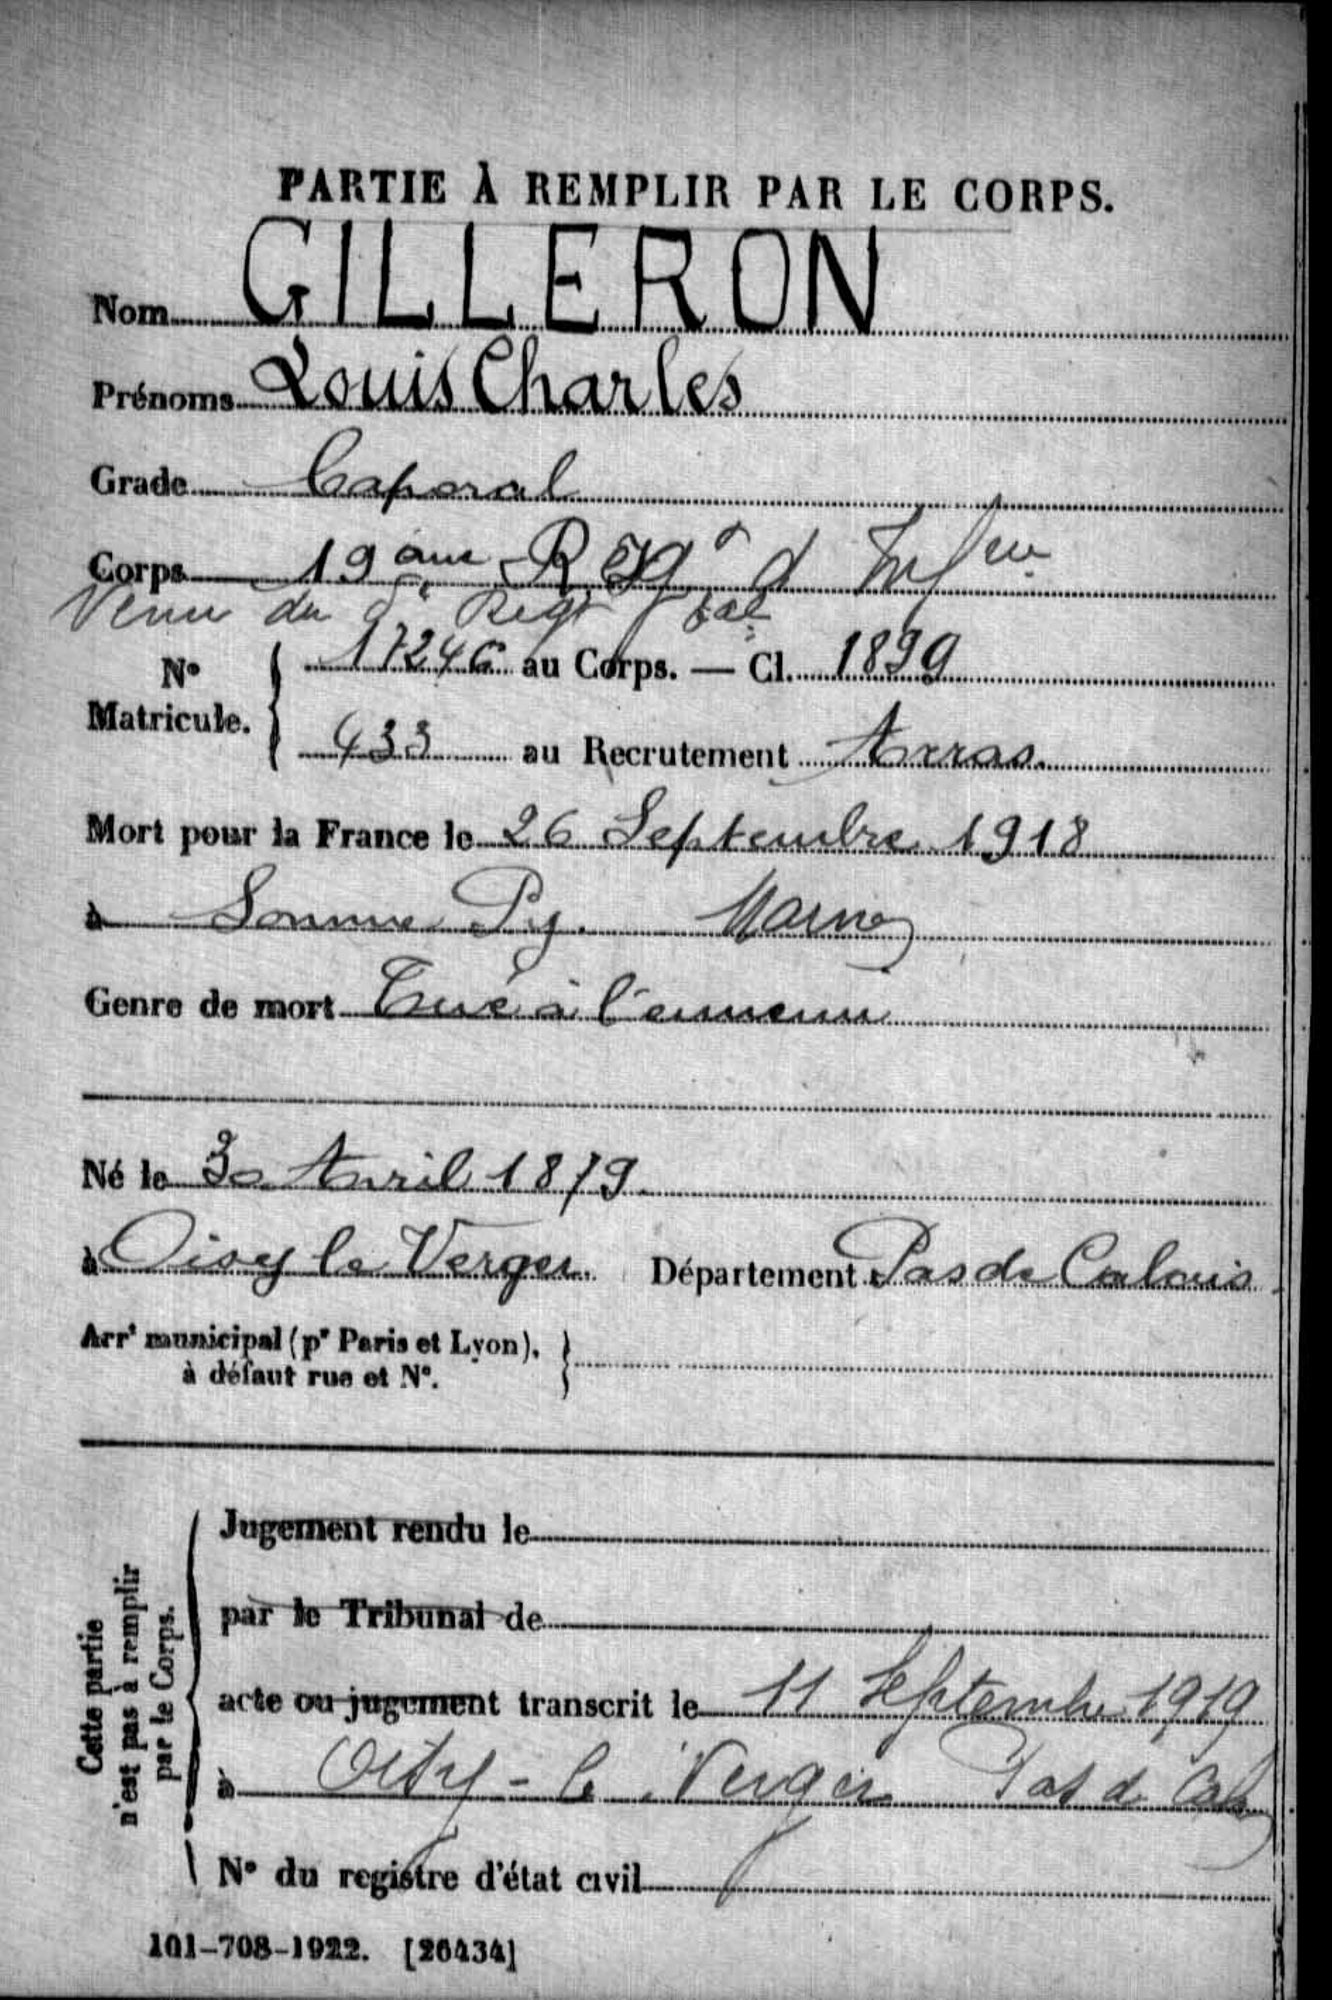 PARTIE À REMPLIR PAR LE CORPS.
Nom GILLERON
Prénoms Louis Charles
Grade Caporal
Corps 19ème Régt d Infrie
Venu du Regt
17246 au Corps. — Cl. 1899
N° Matricule.
433 au Recrutement Arras.
Mort pour la France le 26 Septembre 1918
à Somme Py. Marne
Genre de mort Tué à l'ennemi
Né le 30 Avril 1879.
à Oisy le Verger. Département Pas de Calais
Arrt municipal (pr Paris et Lyon),
à défaut rue et N°.
Cette partie
n'est pas à remplir
par le Corps.
Jugement rendu le
par le Tribunal de
acte ou jugement transcrit le 11 Septembre 1919
à Oisy-le Verger Pas de Cal
N° du registre d'état civil
101-708-1922. [26434]